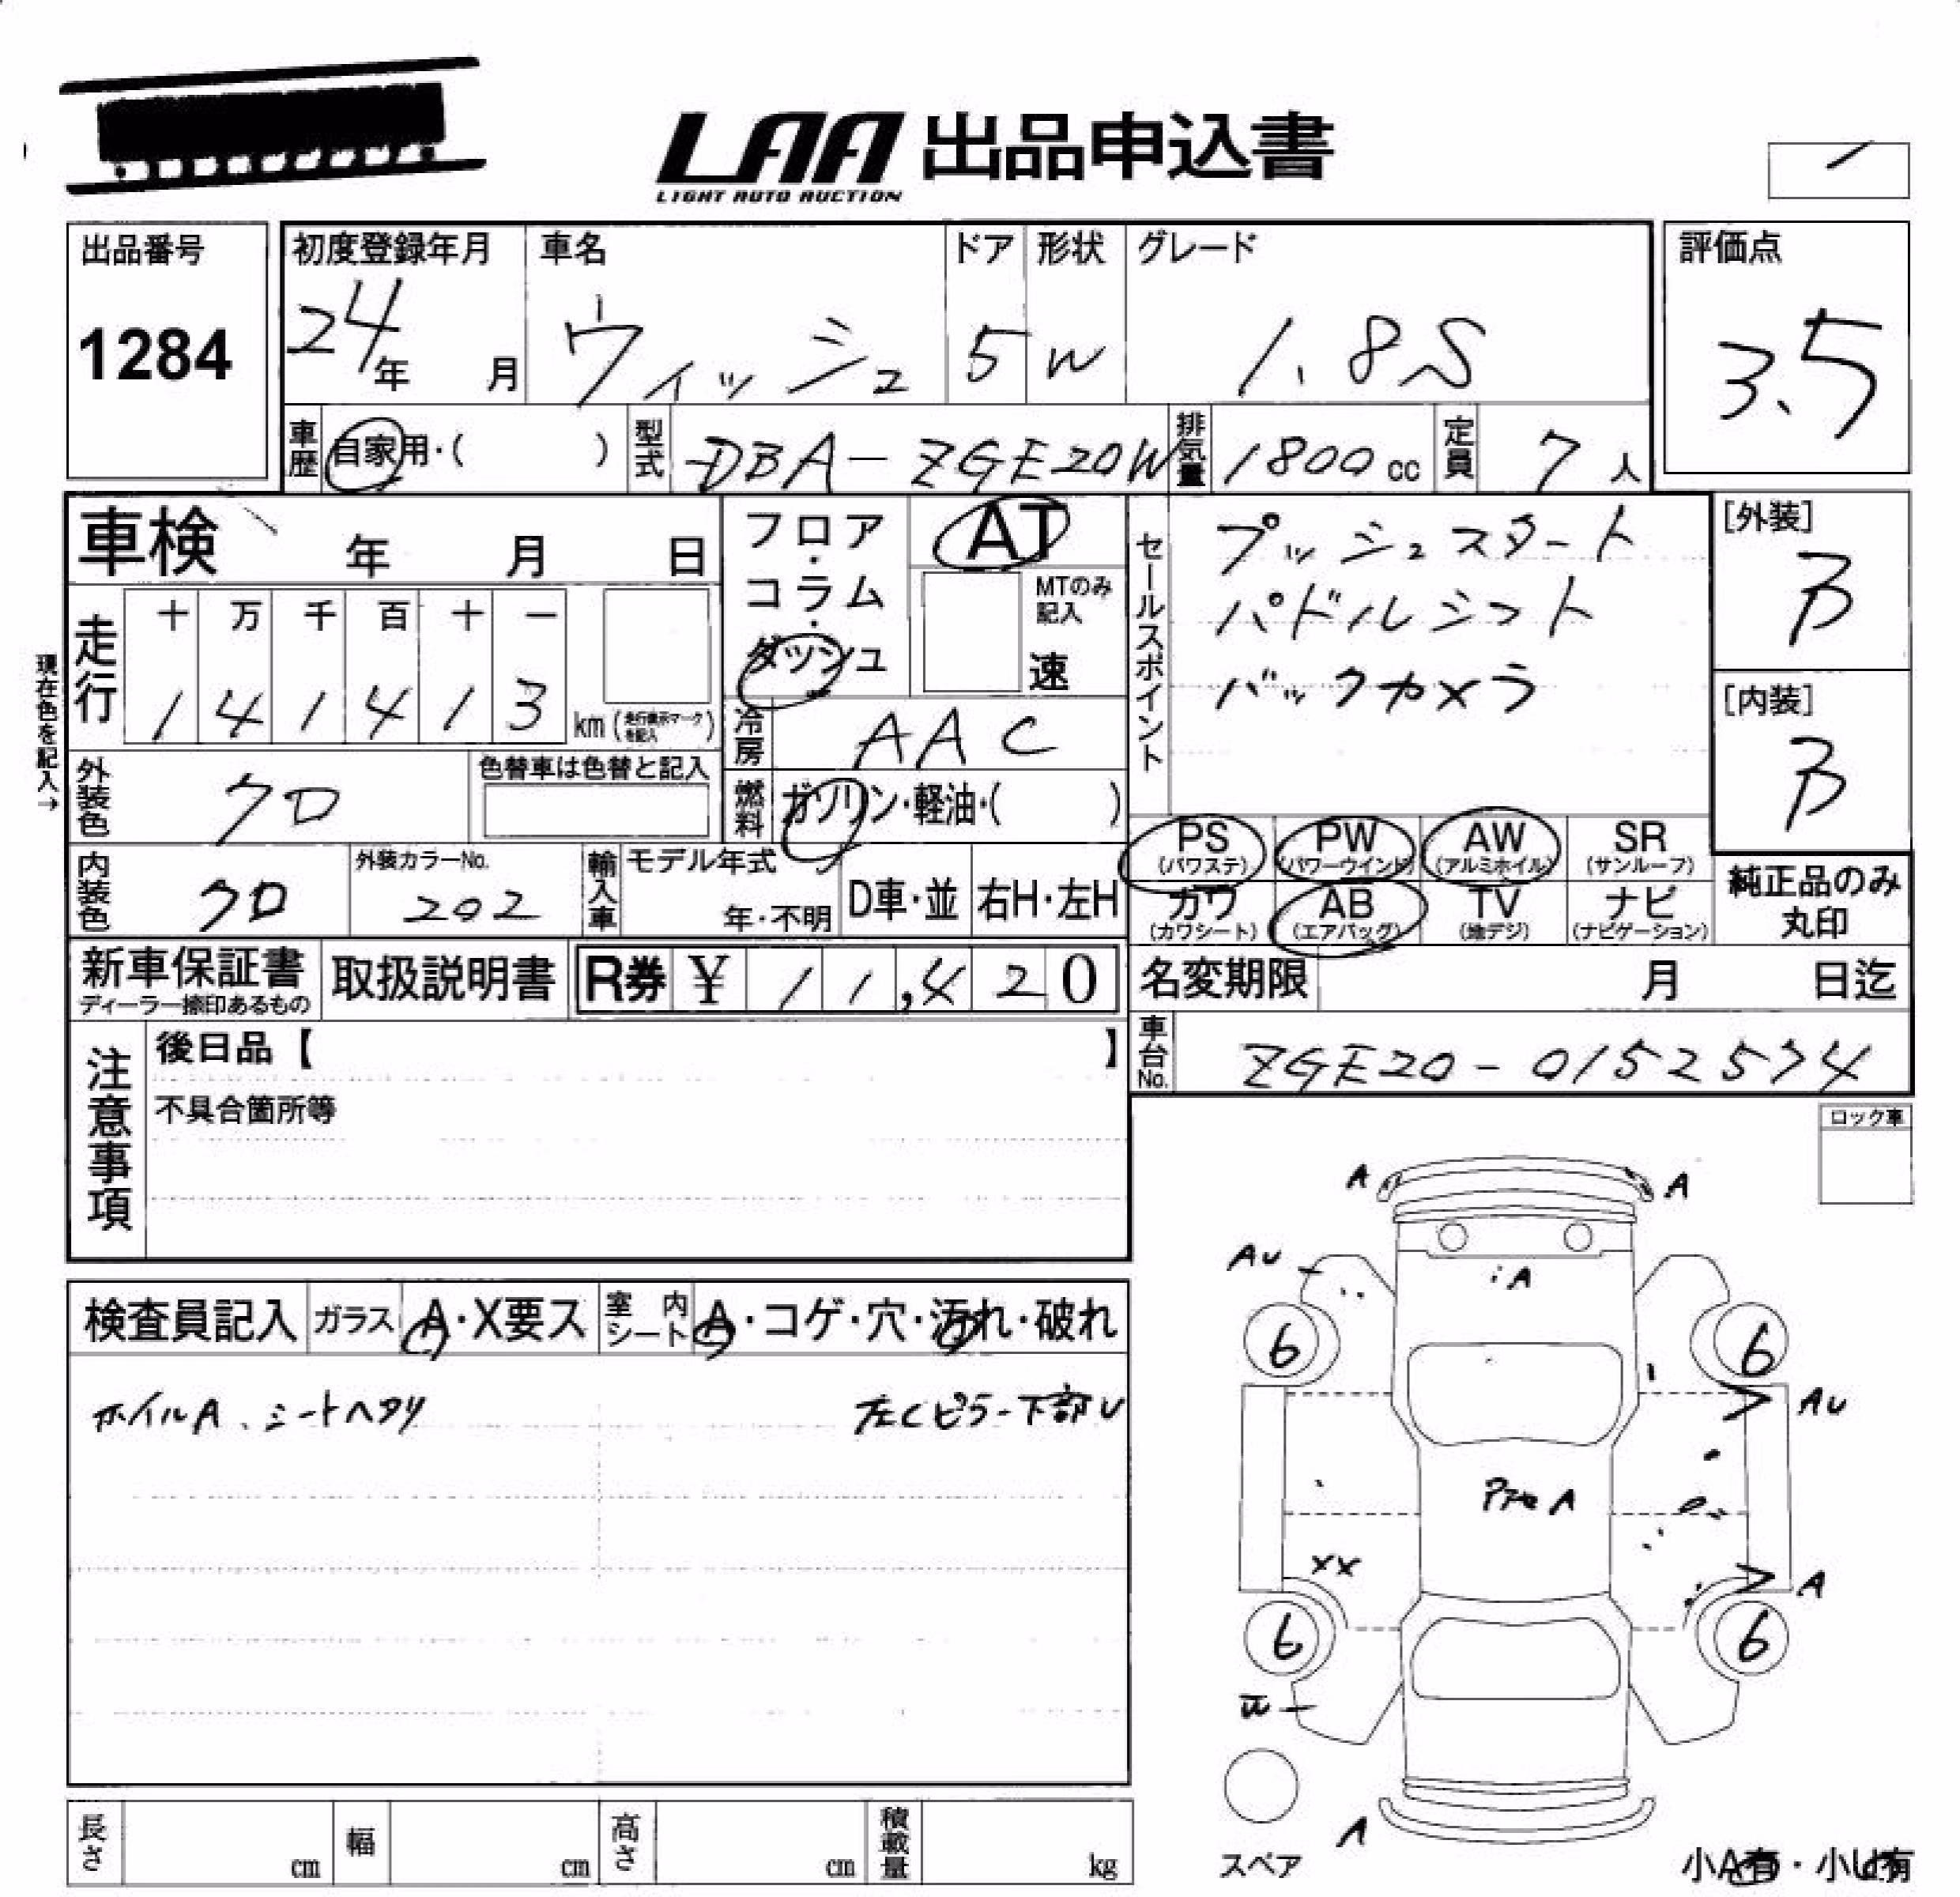 LAA 出品申込書
LIGHT AUTO AUCTION
出品番号
1284
初度登録年月 車名 ドア 形状 グレード
24年 月 ウィッシュ 5 W 1.8S
評価点
3.5
車歴 自家用・( ) 型式 DBA-ZGE20W 排気量 1800cc 定員 7人
車検 年 月 日
フロア・コラム・ダッシュ
AT
MTのみ記入
速
セールスポイント
プッシュスタート
パドルシフト
バックカメラ
[外装]
B
[内装]
B
現在色を記入→
走行 十 万 千 百 十 一
1 4 1 4 1 3 km (走行表示マークを記入)
冷房 AAC
外装色 クロ 色替車は色替と記入
燃料 ガソリン・軽油・( )
内装色 クロ 外装カラーNo. 202
輸入車 モデル年式 年・不明 D車・並 右H・左H
PS (パワステ) PW (パワーウインド) AW (アルミホイル) SR (サンルーフ)
カワ (カワシート) AB (エアバッグ) TV (地デジ) ナビ (ナビゲーション)
純正品のみ
丸印
新車保証書 取扱説明書 R券 ¥ 11,420
ディーラー捺印あるもの
名変期限 月 日迄
車台No. ZGE20-0152574
注意事項
後日品【 】
不具合箇所等
ロック車
検査員記入 ガラス A・X要ス 室内シート A・コゲ・穴・汚れ・破れ
ホイルA、シートヘタリ 左Cピラー下部U
A A
AU
A
6 6
AU
A
XX
A
6 6
A
スペア
小A有・小U有
長さ cm 幅 cm 高さ cm 積載量 kg